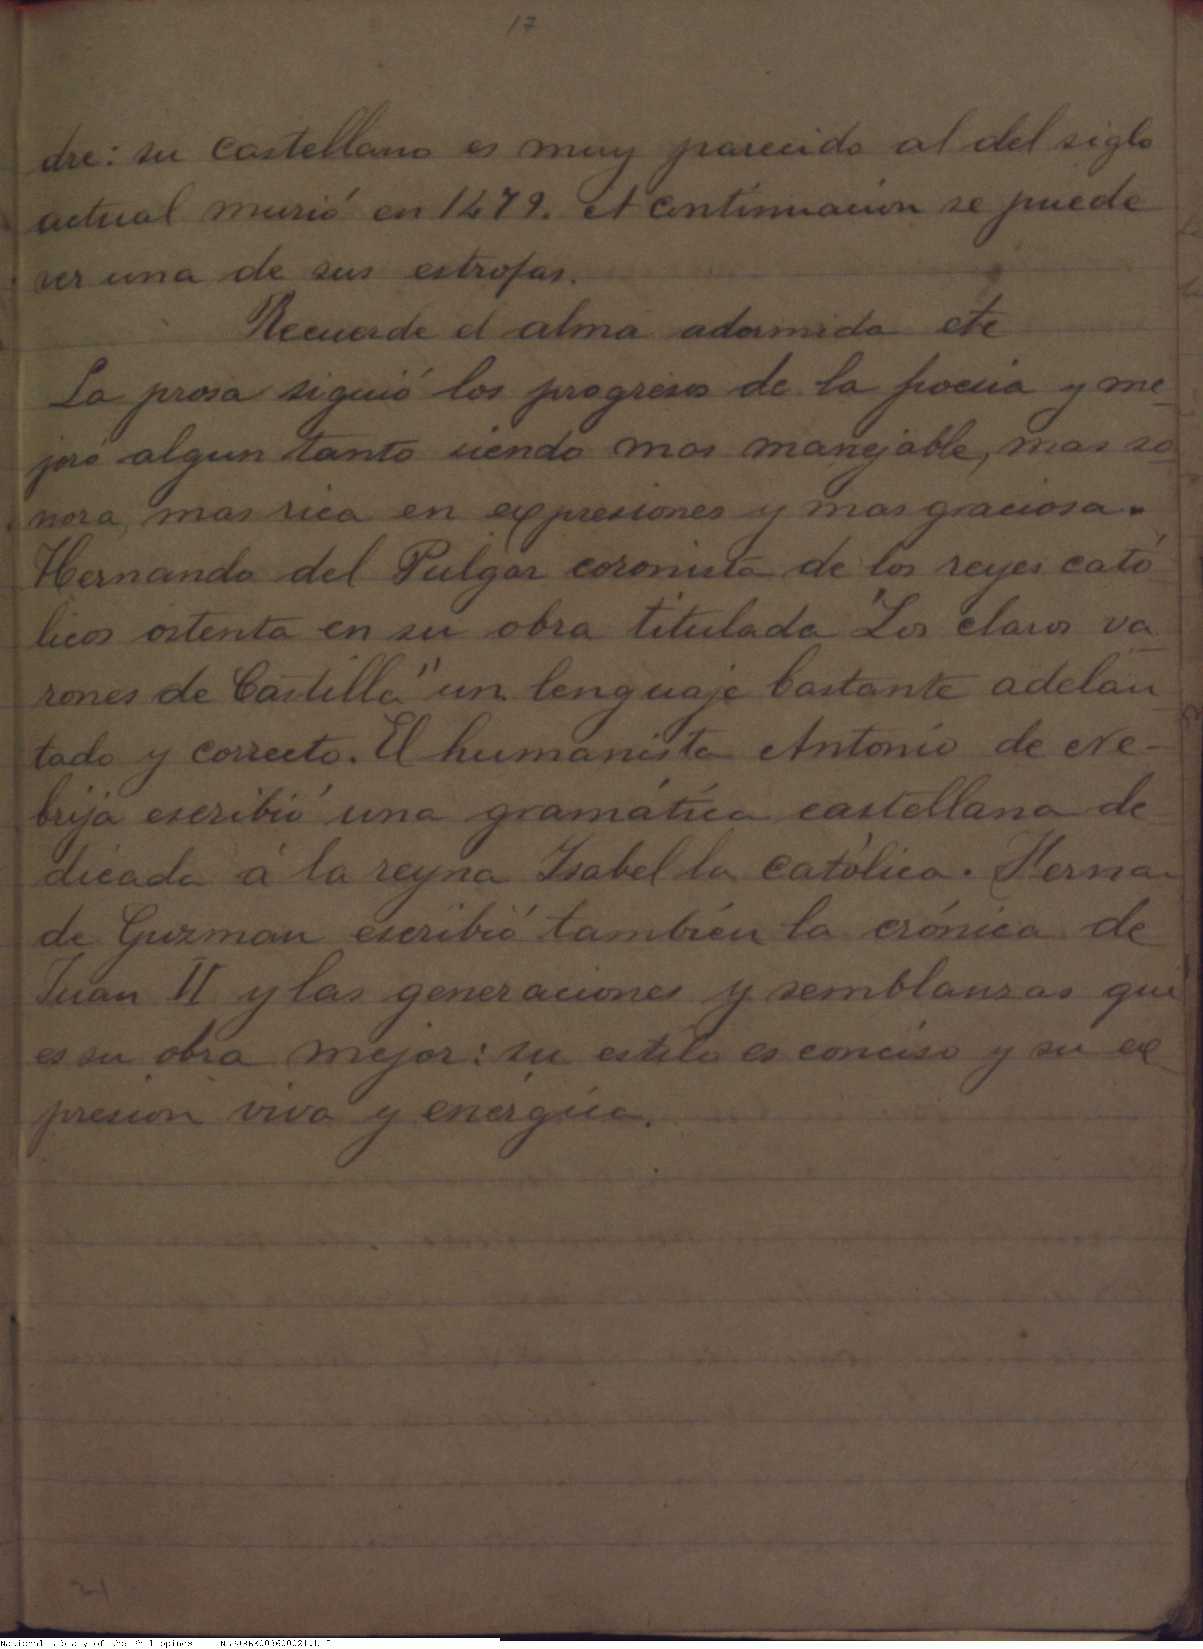 17
dre: su castellano es muy parecido al del siglo
actual murió en 1479. A continuacion se puede
ver una de sus estrofas.
Recuerde el alma adormida etc
La prosa siguió los progresos de la poesia y me_
joró algun tanto siendo mas manejable, mas so_
nora, mas rica en expresiones y mas graciosa.
Hernando del Pulgar coronista de los reyes cató
licos ostenta en su obra titulada "Los claros va_
rones de Castilla" un lenguaje bastante adelan
tado y correcto. El humanista Antonio de Ne-
brija escribió una gramática castellana de
dicada á la reyna Isabel la católica. Hernan
de Guzman escribió también la crónica de
Juan II y las generaciones y semblanzas que
es su obra mejor: su estilo es conciso y su ex_
presion viva y enérgica.
21
National Library of the Philippines